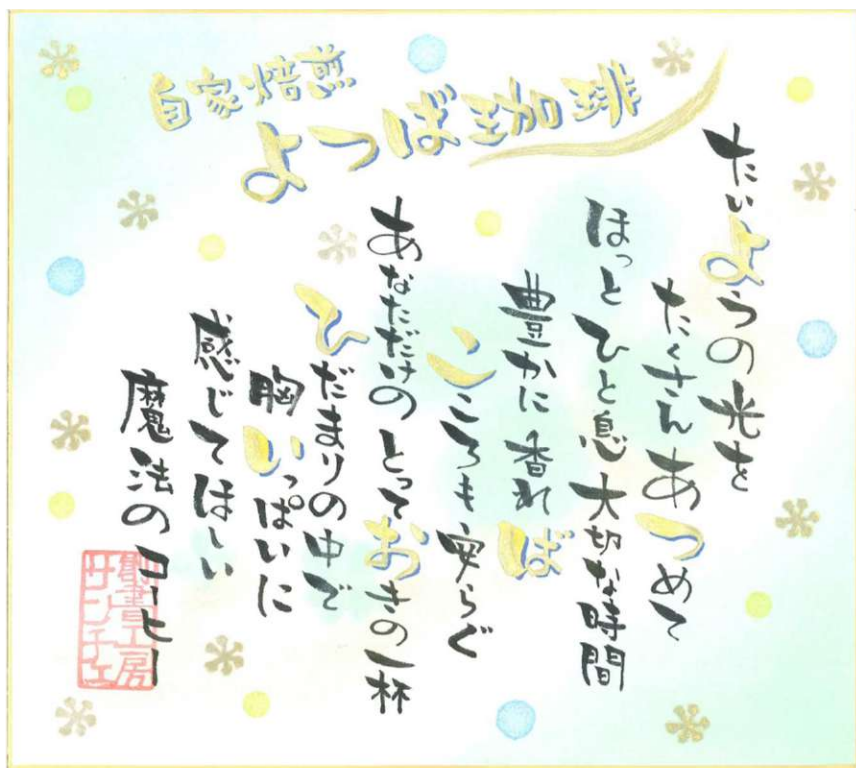 自家焙煎
よつば珈琲
たいようの光を
たくさんあつめて
ほっとひと息大切な時間
豊かに香れば
こころも安らぐ
あなただけのとっておきの一杯
ひだまりの中で
胸いっぱいに
感じてほしい
魔法のコーヒー